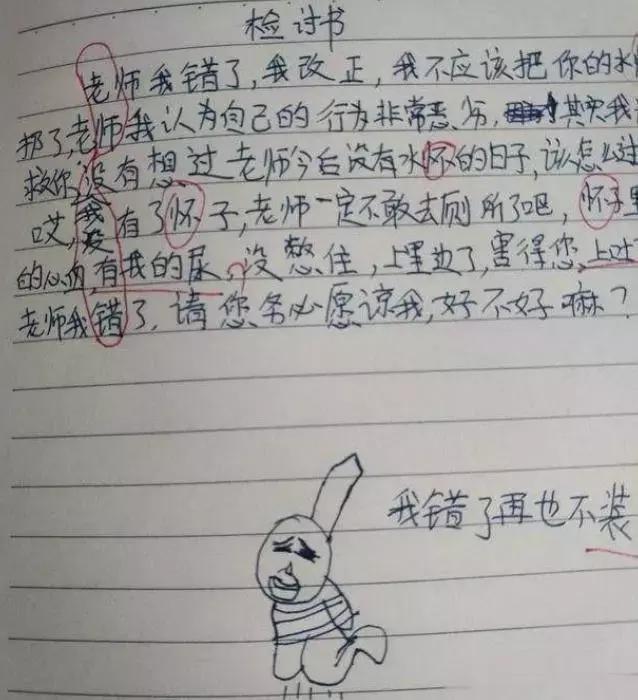 检讨书
老师我错了,我改正,我不应该把你的水
了,老师我认为自己的行为非常恶劣,其实我
救你,没有想过老师今后没有水怀的日子,该怎么过
哎,我没有了怀子,老师一定不敢去厕所了吧,怀子里
的心肉,有我的尿,没憋住,上里边了,害得您上吐
老师我错了,请您务必愿谅我,好不好嘛?
我错了再也不装